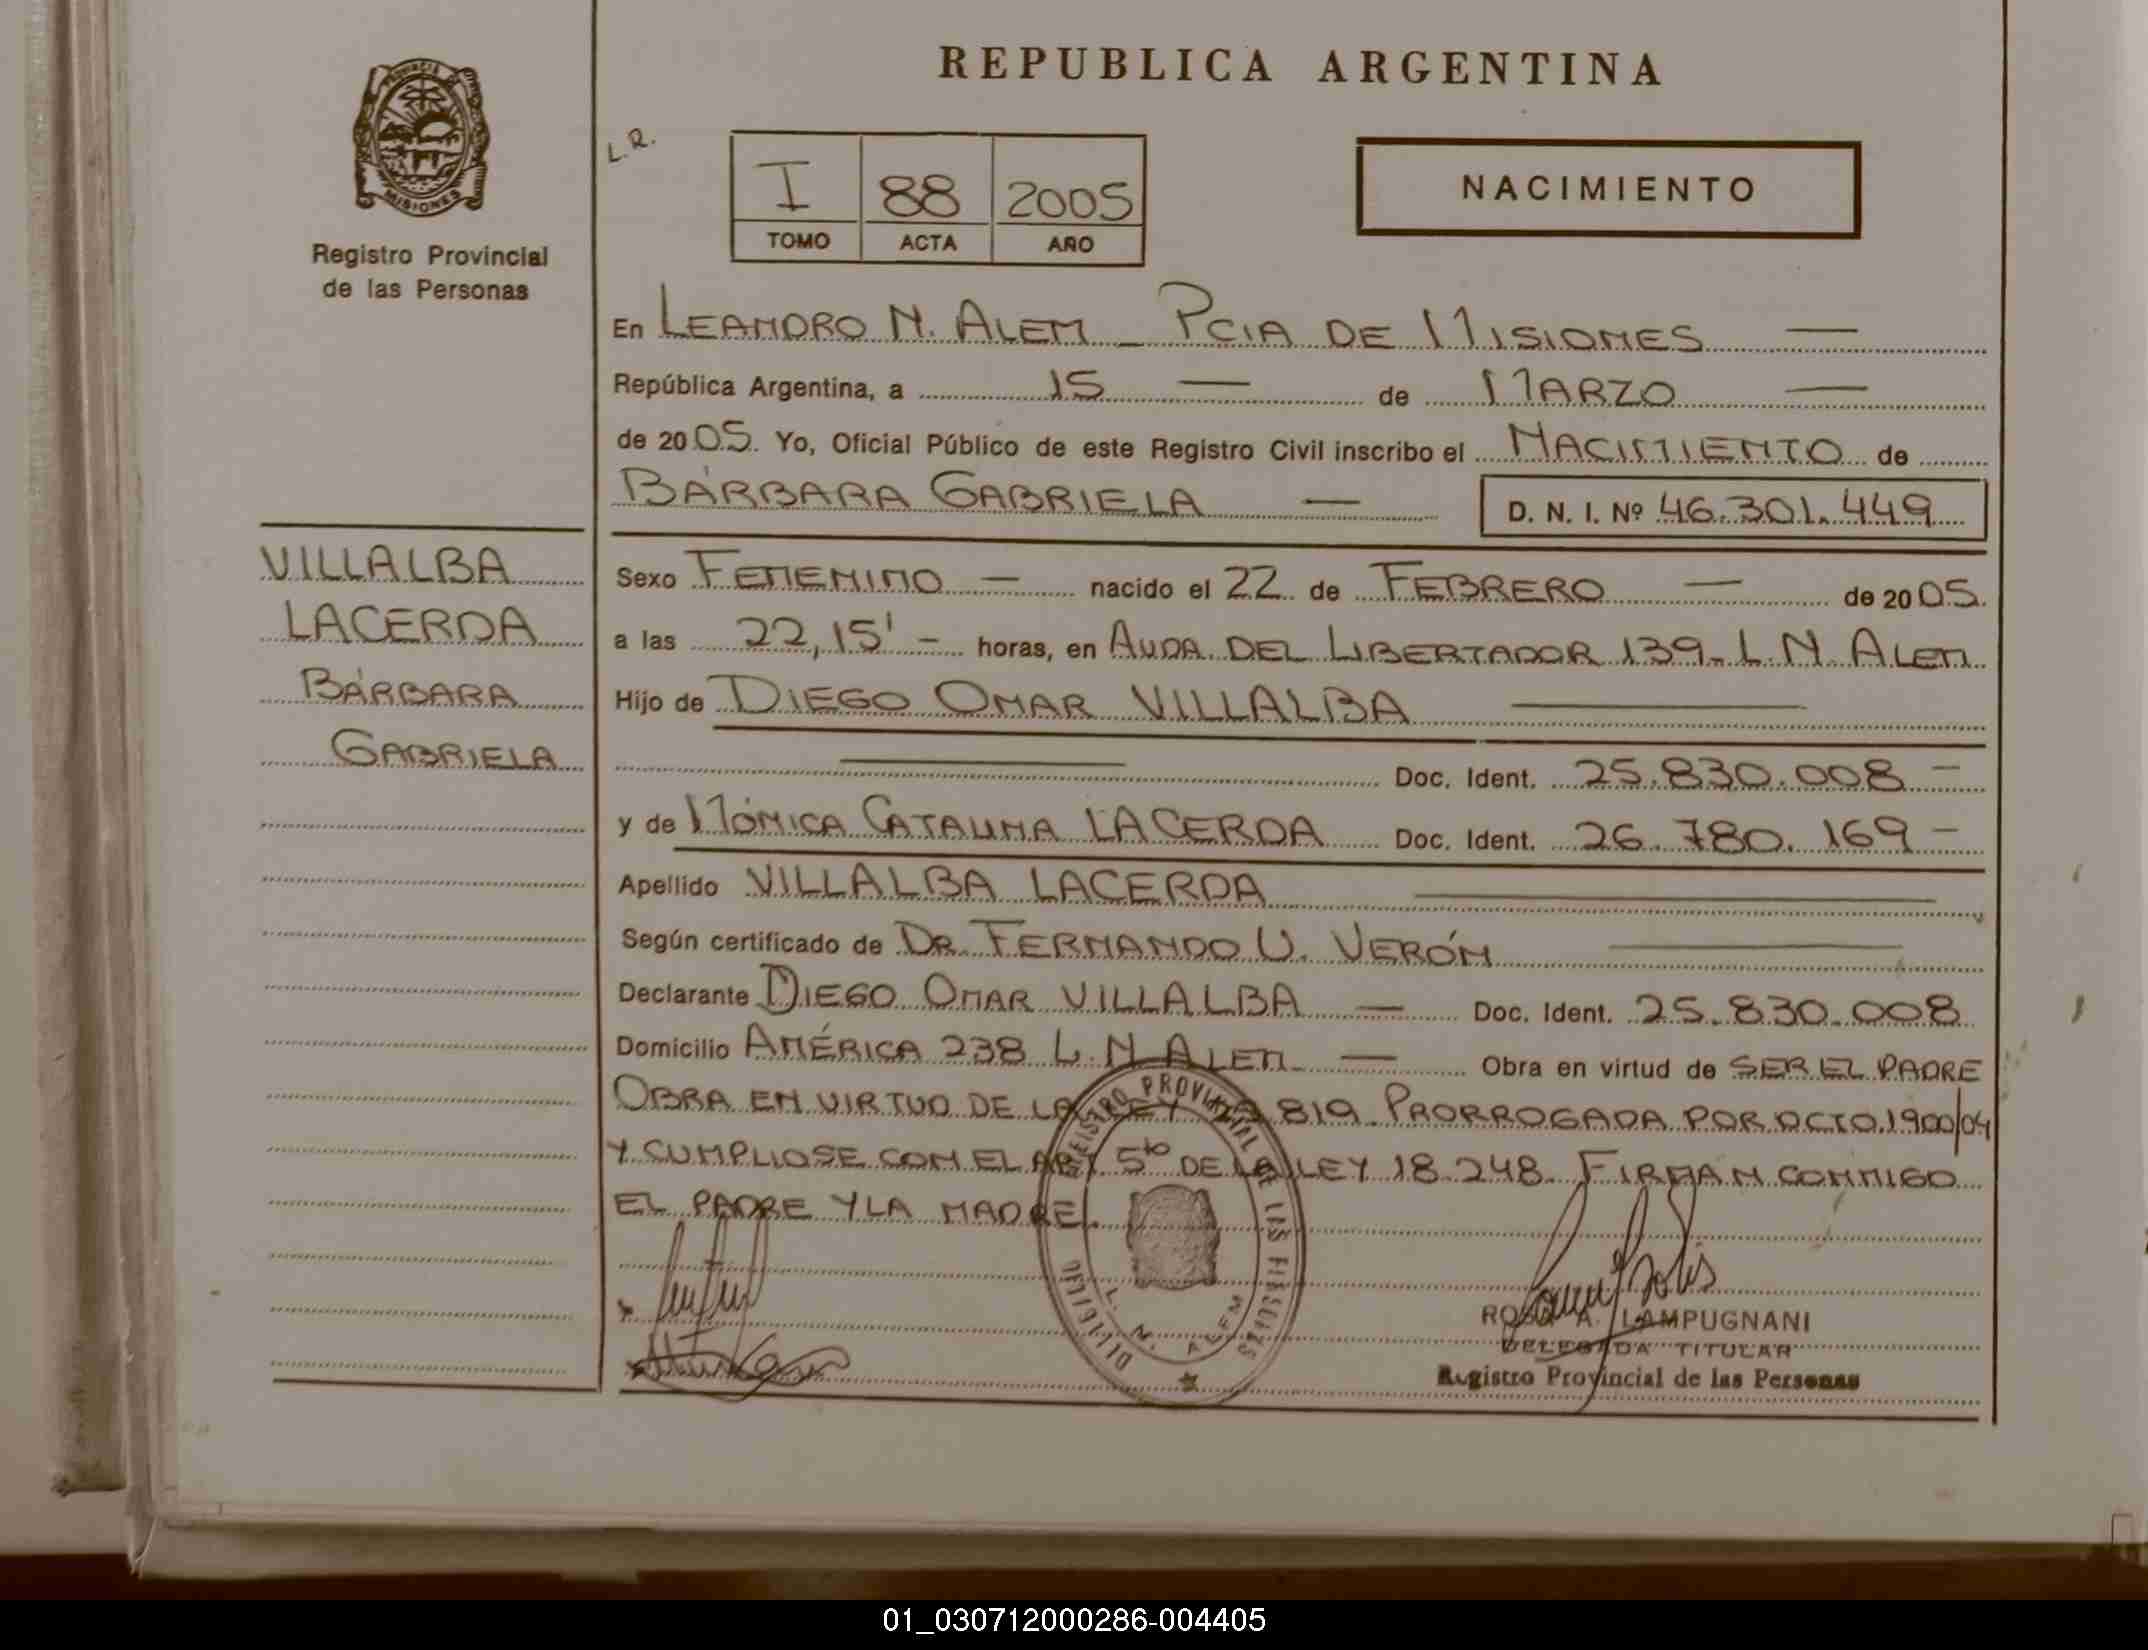 REPUBLICA ARGENTINA
PROVINCIA DE
MISIONES
Registro Provincial
de las Personas
L.R.
I 88 2005
TOMO ACTA AÑO
NACIMIENTO
En LEANDRO N. ALEM _ PCIA DE MISIONES —
República Argentina, a 15 — de MARZO —
de 2005. Yo, Oficial Público de este Registro Civil inscribo el NACIMIENTO de
BÁRBARA GABRIELA — D. N. I. Nº 46.301.449
VILLALBA
LACERDA
BÁRBARA
GABRIELA
Sexo FEMENINO — nacido el 22 de FEBRERO — de 2005.
a las 22,15' - horas, en AVDA. DEL LIBERTADOR 139- L.N. ALEM.
Hijo de DIEGO OMAR VILLALBA —
— Doc. Ident. 25.830.008 -
y de MÓNICA CATALINA LACERDA Doc. Ident. 26.780.169 -
Apellido VILLALBA LACERDA —
Según certificado de DR. FERNANDO U. VERÓN —
Declarante DIEGO OMAR VILLALBA — Doc. Ident. 25.830.008
Domicilio AMÉRICA 238 L.N. ALEM — Obra en virtud de SER EL PADRE
OBRA EN VIRTUD DE LA LEY 819 PRORROGADA POR DCTO.1900/04
Y CUMPLIOSE CON EL ART 5to DE LA LEY 18.248. FIRMAN CONMIGO
EL PADRE Y LA MADRE.
REGISTRO PROVINCIAL DE LAS PERSONAS
L. N. ALEM
ROSA A. LAMPUGNANI
DELEGADA TITULAR
Registro Provincial de las Personas
01_030712000286-004405